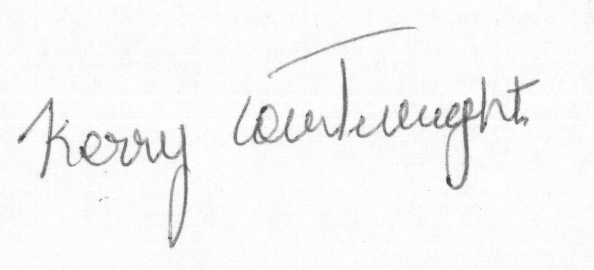 Kerry Courtwright